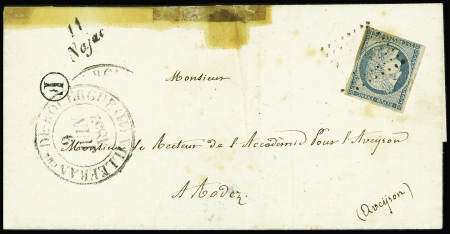 11
Najac
M
VILLEFRANCHE DE ROUERGUE
Monsieur
Monsieur le Recteur de l'Accademie Pour l'Aveyron
A Rodez
(Aveyron)